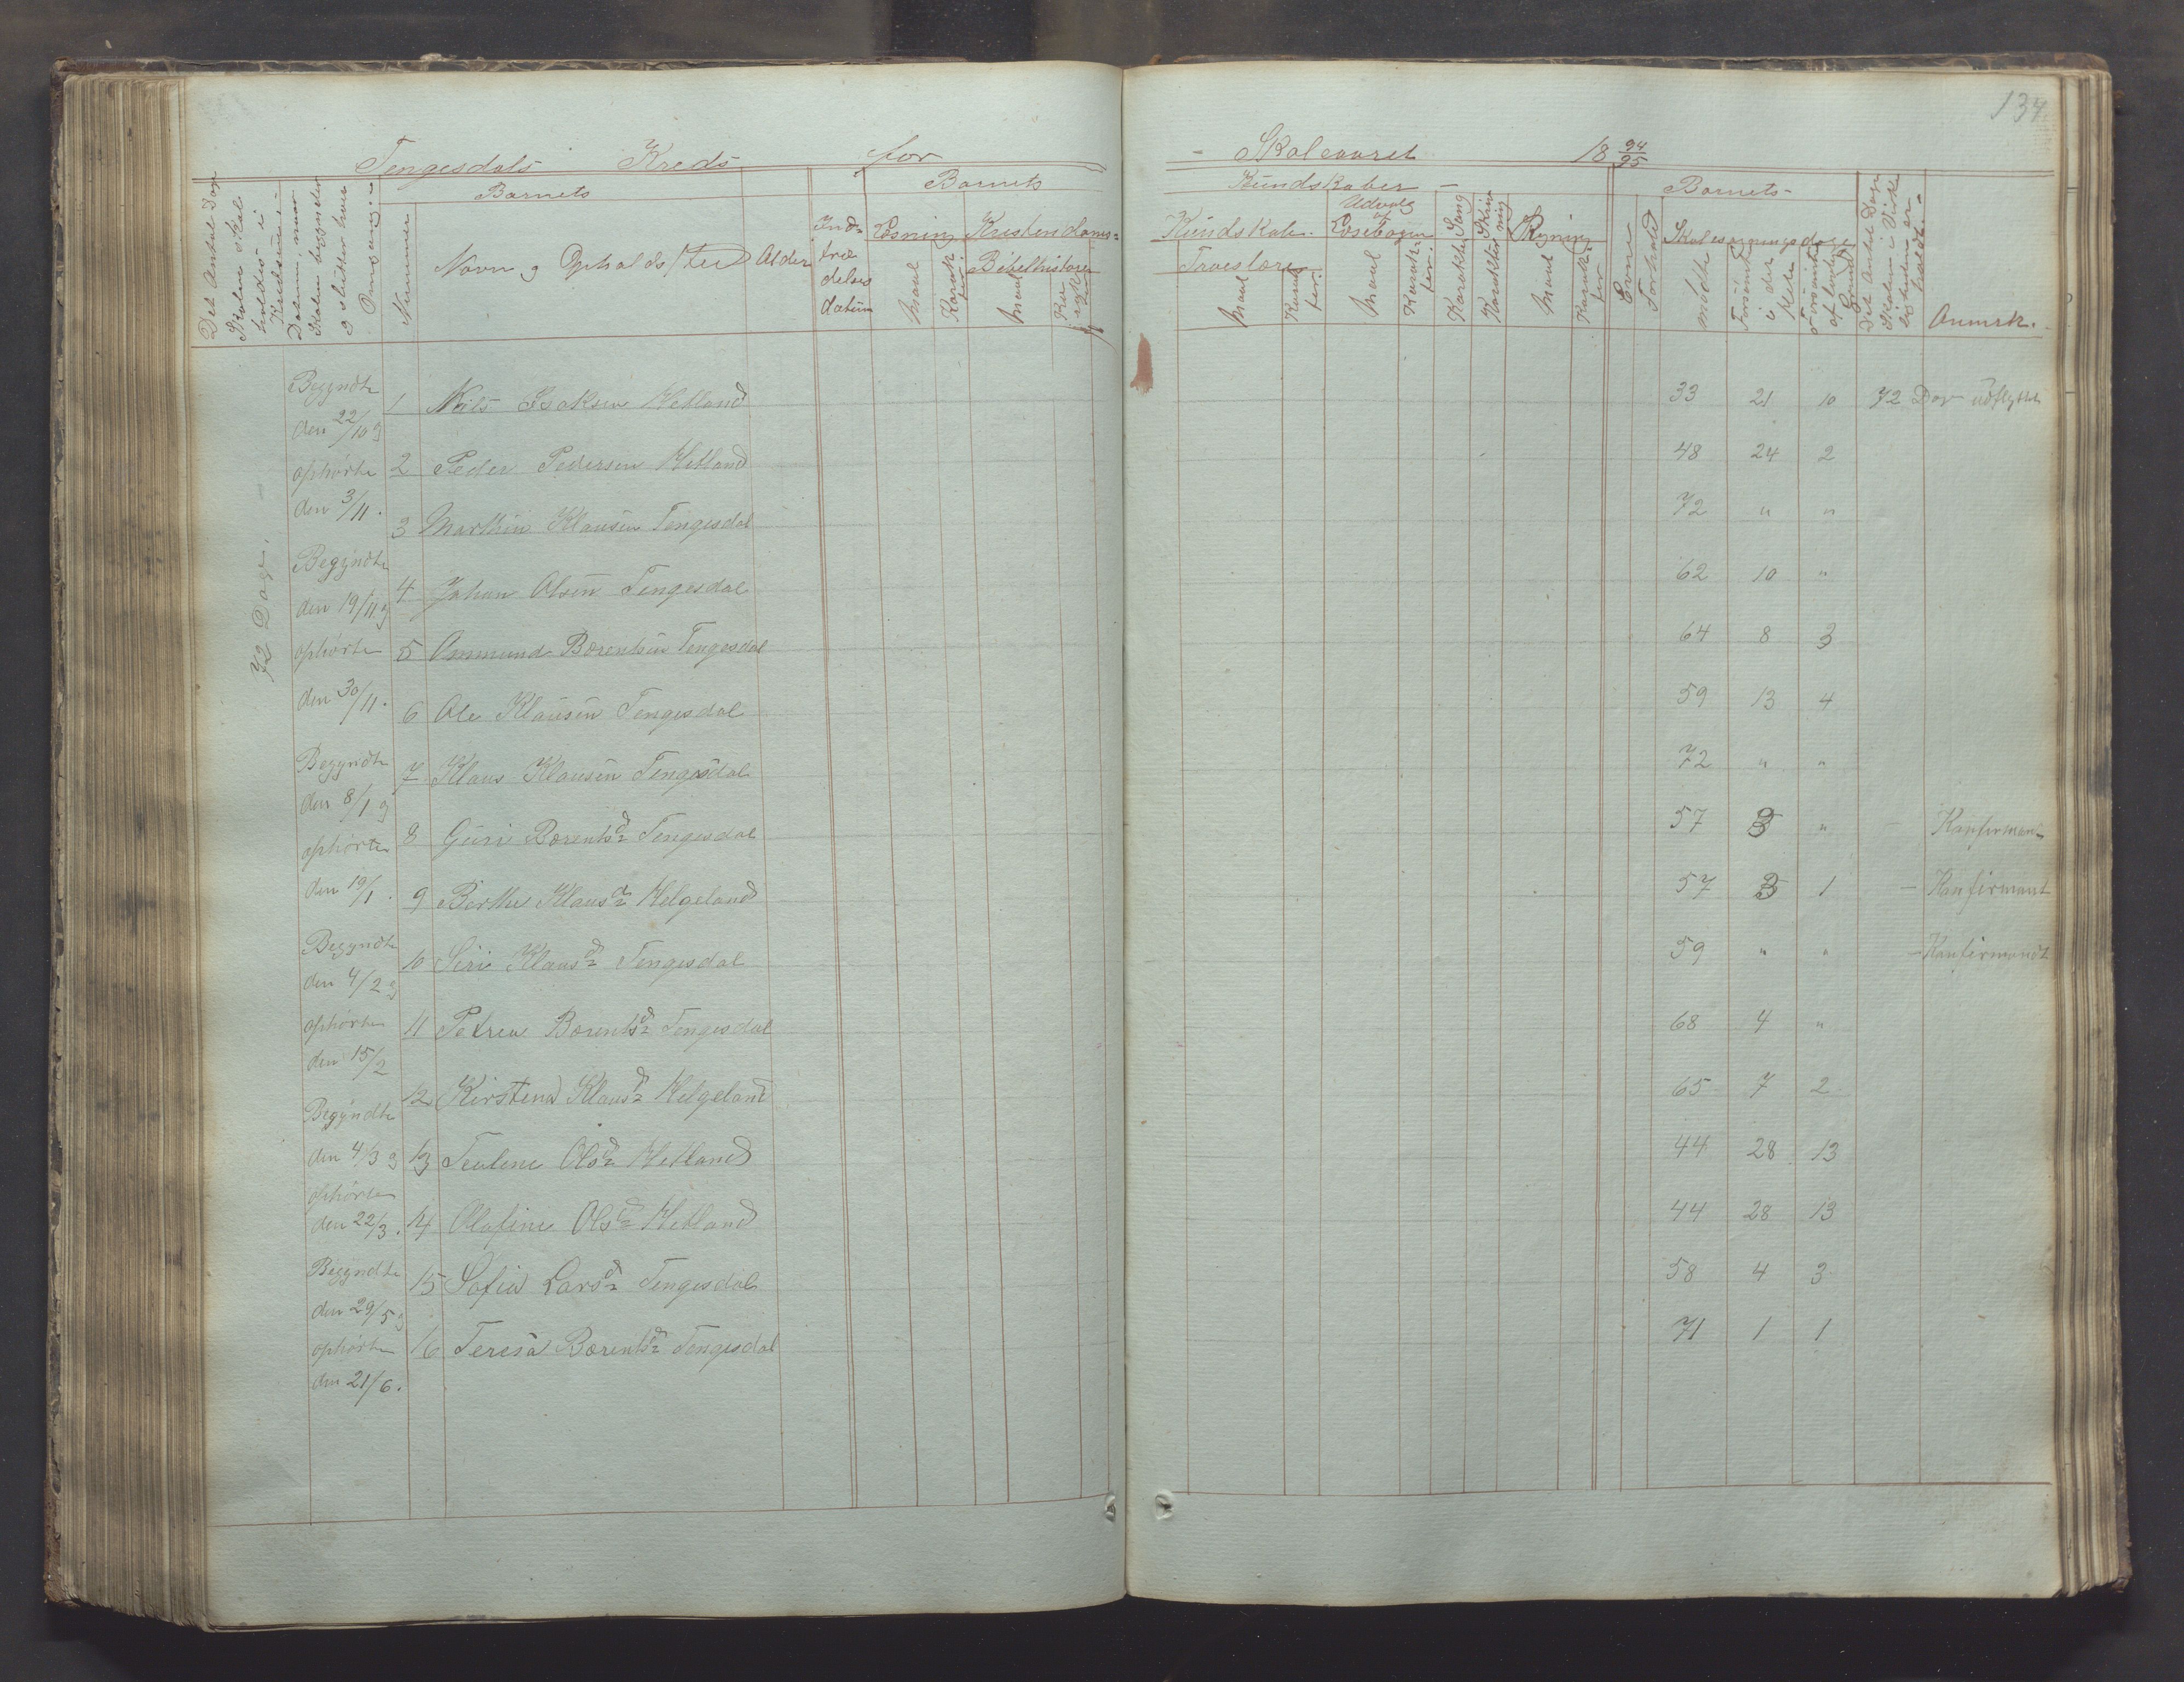 134
Tengesdals Kreds for
Skoleaaret 18 94/95
Det Antal Dage
Skolen skal
holdes i
Kredsen
Datum, naar
Skolen begynder
og slutter hver
Omgang.
Nummer
Barnets
Navn og Opholdssted
Alder
Ind-
træ
delses
datum
Barnets
Læsning
Maal
Karakter
Kristendoms-
Bibelhistorie
Maal
Karakter
Kundskaber
Kundskab.
Troeslære
Maal
Karakter.
Udvalg
af
Læsebogen
Maal
Karakter.
Sang
Karakter
Skrivning
Karakter
Regning
Maal
Karakter
Barnets
Evne
Forhold
Skolesøgningsdage
mødte
Forsømte
i det
Hele
Forsømte
af lovlig
Grund
Det Antal Dage
Skolen i Virke-
ligheden er
holdt.
Anmrk.
72 Dage.
Begyndte
den 22/10 og
ophørte
den 3/11.
Begyndte
den 19/11 og
ophørte
den 30/11.
Begyndte
den 8/1 og
ophørte
den 19/1.
Begyndte
den 4/2 og
ophørte
den 15/2
Begyndte
den 4/3 og
ophørte
den 22/3.
Begyndte
den 29/5 og
ophørte
den 21/6.
1 Nils Isaksen Hetland 33 21 10 72 Dar udflyttet
2 Peder Pedersen Hetland 48 24 2
3 Marthin Klausen Tengesdal 72 " "
4 Johan Olsen Tengesdal 62 10 "
5 Ommund Bærentsen Tengesdal 64 8 3
6 Ole Klausen Tengesdal 59 13 4
7 Klaus Klausen Tengesdal 72 " "
8 Guri Bærentsd Tengesdal 57 3 " Konfirmant
9 Berthe Klausd Helgeland 57 3 1 - Konfirmant
10 Siri Klausd Tengesdal 59 " " - Konfirmandt
11 Petrea Bærentsd Tengesdal 68 4 "
12 Kirstena Klausd Helgeland 65 7 2
13 Teoline Olsd Hetland 44 28 13
14 Olafine Olsd Hetland 44 28 13
15 Sofia Larsd Tengesdal 58 4 3
16 Teresa Bærentsd Tengesdal 71 1 1